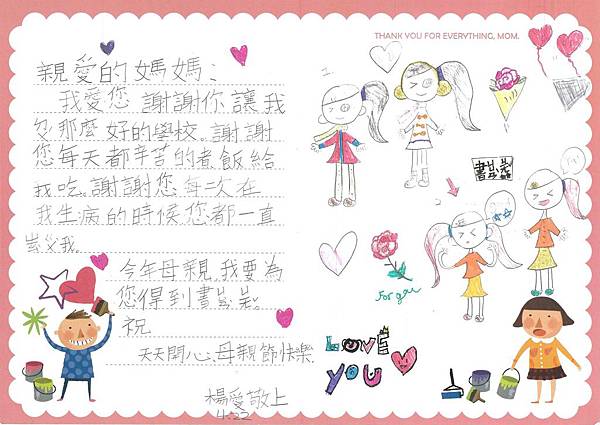 THANK YOU FOR EVERYTHING, MOM.
親愛的媽媽:
我愛您 謝謝你讓我
那麼好的學校。謝謝
您每天都辛苦的煮飯給
我吃。謝謝您每次在
我生病的時候您都一直
我。
今年母親,我要為
您得到書
祝
天天開心、母親節快樂.
楊愛敬上
4.22
For you
LOVE
YOU